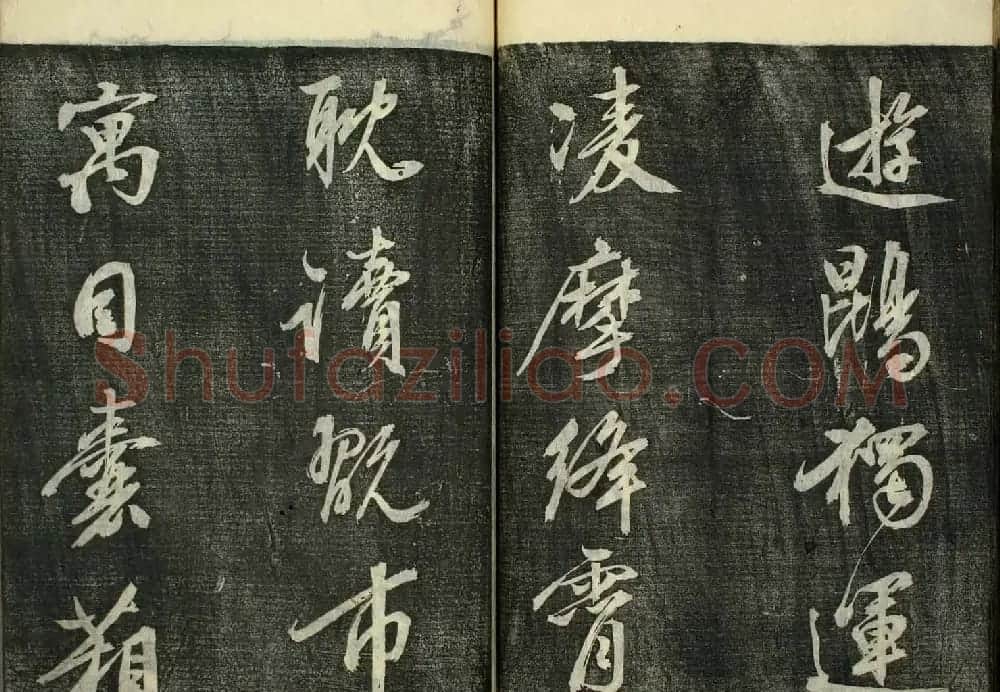 遊鵾獨運
凌摩絳霄
耽讀翫市
寓目囊箱
Shufaziliao.COM